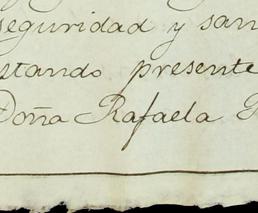 seguridad y san
stando presente
Doña Rafaela